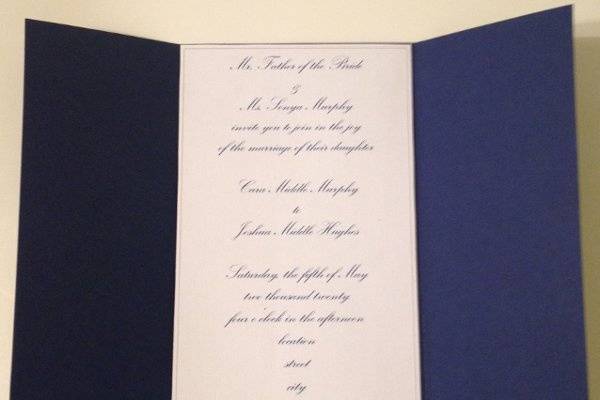 Mr. Father of the Bride
&
Ms. Sonya Murphy
invite you to join in the joy
of the marriage of their daughter
Cara Middle Murphy
to
Joshua Middle Hughes
Saturday, the fifth of May
two thousand twenty
four o'clock in the afternoon
location
street
city